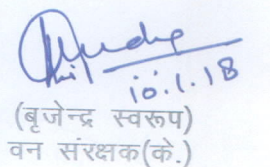 10.1.18
(बृजेन्द्र स्वरूप)
वन संरक्षक(के.)